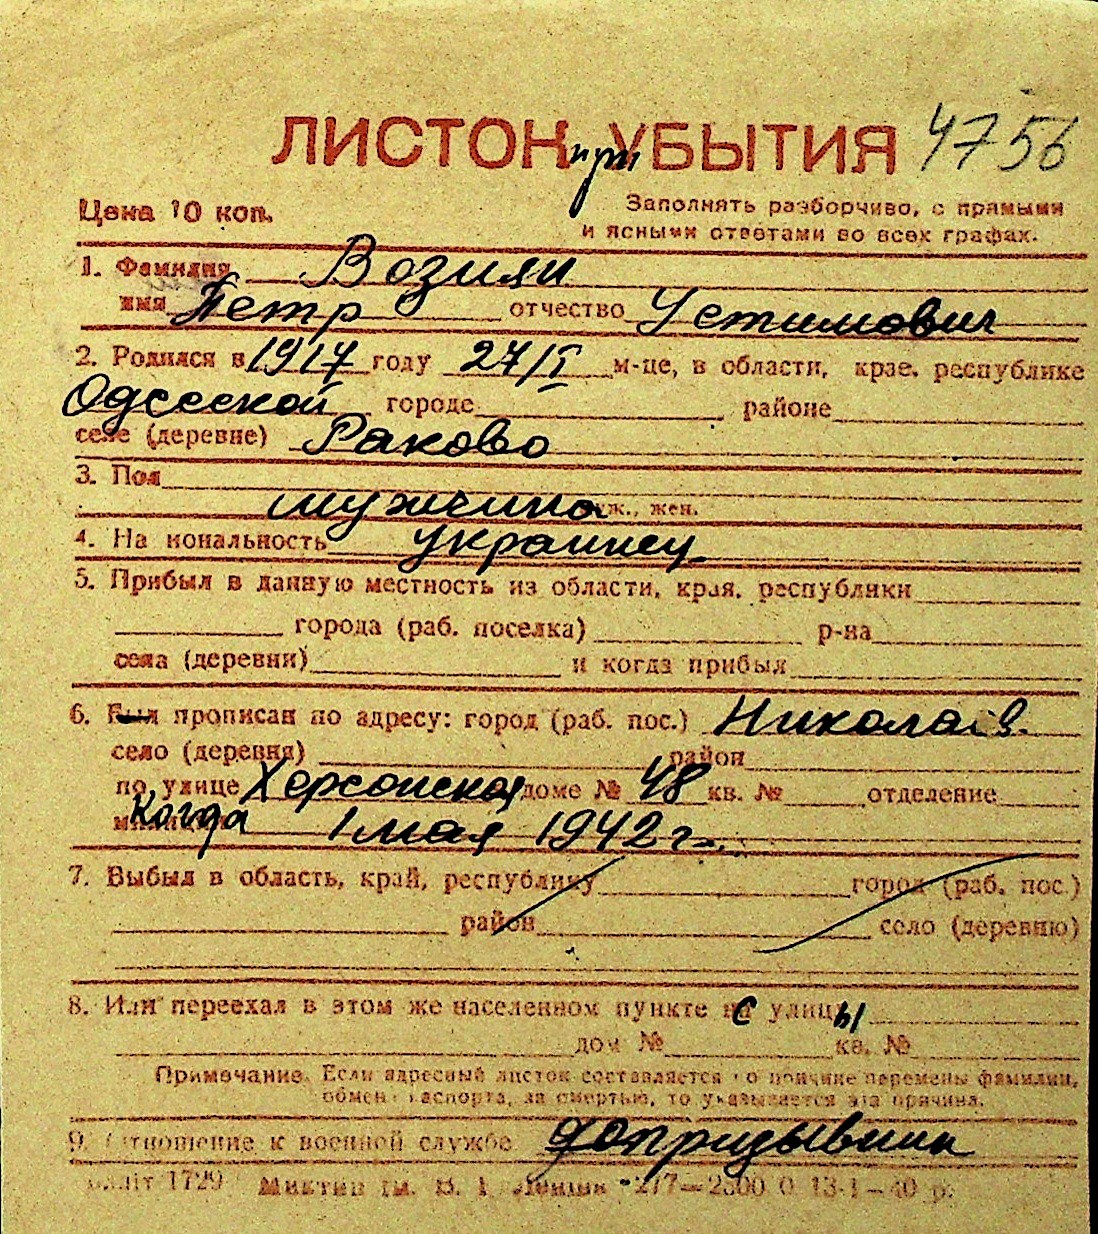 ЛИСТОК при УБЫТИЯ 4756
Цена 10 коп.
Заполнять разборчиво, с прямыми
и ясными ответами во всех графах.
1. Фамилия Возиян
имя Петр отчество Устимович
2. Родился в 1917 году 27/I м-це, в области, крае, республике
Одесской городе районе
селе (деревне) Раково
3. Пол
мужчина муж., жен.
4. Национальность украинец
5. Прибыл в данную местность из области, края, республики
города (раб. поселка) р-на
села (деревни) и когда прибыл
6. Был прописан по адресу: город (раб. пос.) Николаев.
село (деревня) район
по улице Херсонская доме № 48 кв. № отделение
когда 1 мая 1942 г.
7. Выбыл в область, край, республику город (раб. пос.)
район село (деревню)
8. Или переехал в этом же населенном пункте с улицы
дом № кв. №
Примечание. Если адресный листок составляется по причине перемены фамилии,
обмена паспорта, за смертью, то указывается эта причина.
9. Отношение к военной службе допризывник
1729 277—2500 0 13-I—40 р.